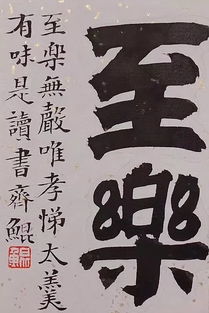 至樂
至樂無聲唯孝悌太羹
有味是讀書齊鯤